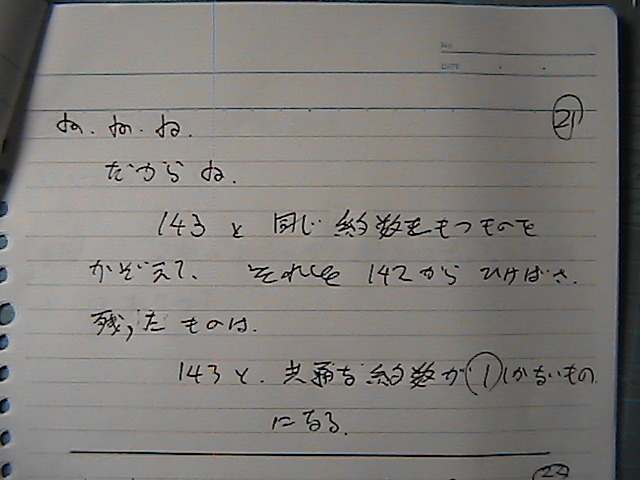 No.
DATE
21
ね.ね.ね.
だからね.
143と 同じ 約数をもつものを
かぞえて、 それを 142から ひけばさ.
残ったものは.
143と、共通な約数が 1 しかないもの
になる.
22